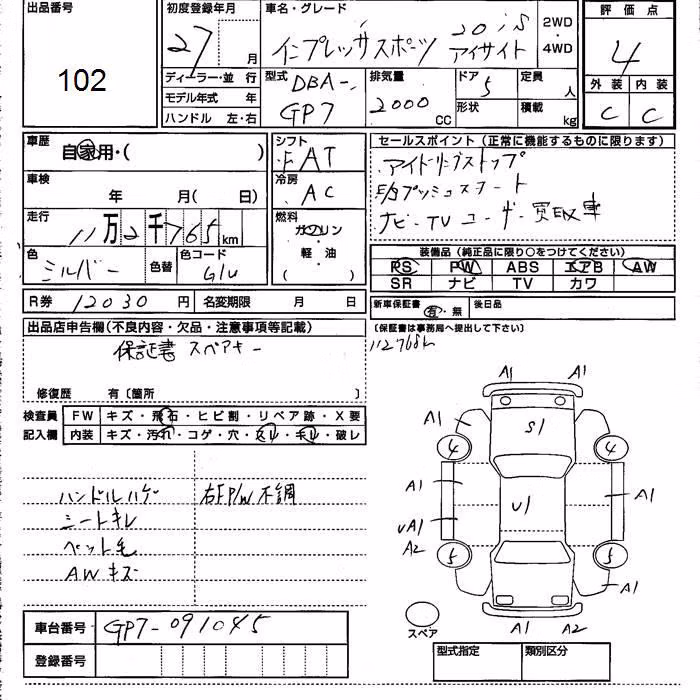 出品番号
102
初度登録年月
27 月
ディーラー・並 行
モデル年式 年
ハンドル 左・右
車名・グレード
20iS
インプレッサスポーツ アイサイト
2WD
・
4WD
型式 DBA-
GP7
排気量
2000 CC
ドア 5
形状
定員 人
積載 kg
評価点
4
外装 内装
C C
車歴
自家用・( )
車検
年 月( 日)
走行
11万2千765km
色
シルバー
色替
色コード
G1U
シフト
FAT
冷房
AC
燃料
ガソリン
・
軽・油
( )
セールスポイント(正常に機能するものに限ります)
アイドリングストップ
E/gプッシュスタート
ナビ・TV ユーザー買取車
装備品(純正品に限り○をつけてください)
PS PW ABS エアB AW
SR ナビ TV カワ
R券 12030 円 名変期限 月 日
新車保証書 有・無 後日品
(保証書は事務局へ提出して下さい)
112768k
出品店申告欄(不良内容・欠品・注意事項等記載)
保証書 スペアキー
修復歴 有〔箇所 〕
検査員
記入欄
FW キズ・飛石・ヒビ割・リペア跡・X要
内装 キズ・汚れ・コゲ・穴・スレ・キレ・破レ
ハンドルハゲ 右FP/W不調
シートキレ
ペット毛
AWキズ
車台番号 GP7-091045
登録番号
A1 A1
A1 S1
4 4
A1 U1 A1
UA1
A2
5 5
A1
A1 A2
スペア
型式指定 類別区分